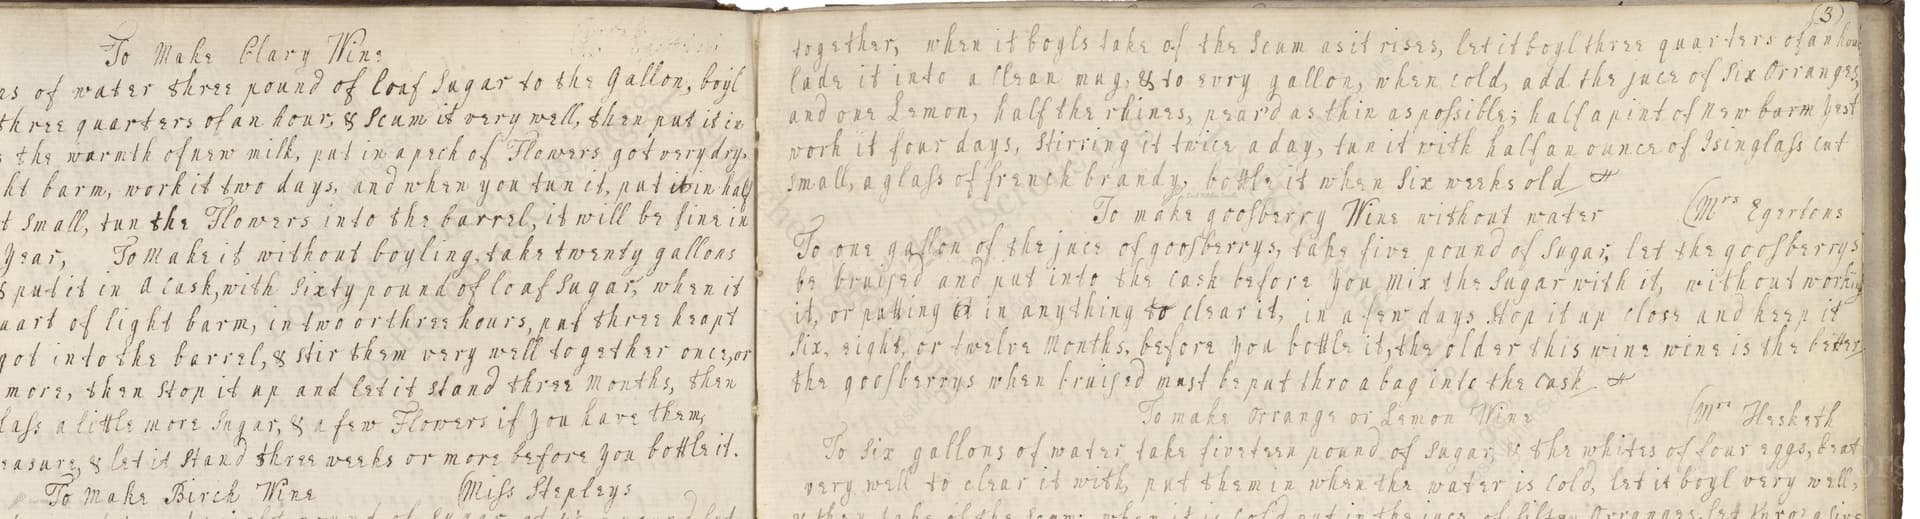 To Make Clary Wine
as of water three pound of loaf Sugar to the Gallon, boyl
three quarters of an hour, & Scum it very well, then put it in
the warmth of new milk, put in a peck of Flowers got very dry,
ht barm, work it two days, and when you tun it, put it in half
t small, tun the Flowers into the barrel, it will be fine in
Year, To Make it without boyling, take twenty gallons
& put it in a Cask, with Sixty pound of loaf Sugar, when it
uart of light barm, in two or three hours, put three heapt
got into the barrel, & Stir them very well together once, or
more, then Stop it up and let it stand three Months, then
lass a little more Sugar, & a few Flowers if you have them,
easure, & let it Stand three weeks or more before you bottle it.
To Make Birch Wine (Miss Stepleys
(3)
together, when it boyls take of the Scum as it rises, let it boyl three quarters of an hour
lade it into a Clean mug, & to evry gallon, when cold, add the juce of Six Orranges,
and one Lemon, half the rhines, peard as thin as possible; half a pint of new barm yest
work it four days, Stirring it twice a day, tun it with half an ounce of Isinglass cut
small, a glass of french brandy, bottle it when Six weeks old
To make goosberry Wine without water (Mrs Egertons
To one gallon of the juce of goosberrys, take five pound of Sugar, let the goosberrys
be bruised and put into the cask before you mix the Sugar with it, without working
it, or putting in anything to clear it, in a few days Stop it up close and keep it
Six, eight, or twelve Months, before you bottle it, the older this wine wine is the better
the goosberrys when bruised must be put thro a bag into the Cask
To make Orrange or Lemon Wine (Mrs Hesketh
To Six gallons of water take fiveteen pound of Sugar & the whites of four eggs, beat
very well to clear it with, put them in when the water is cold, let it boyl very well,